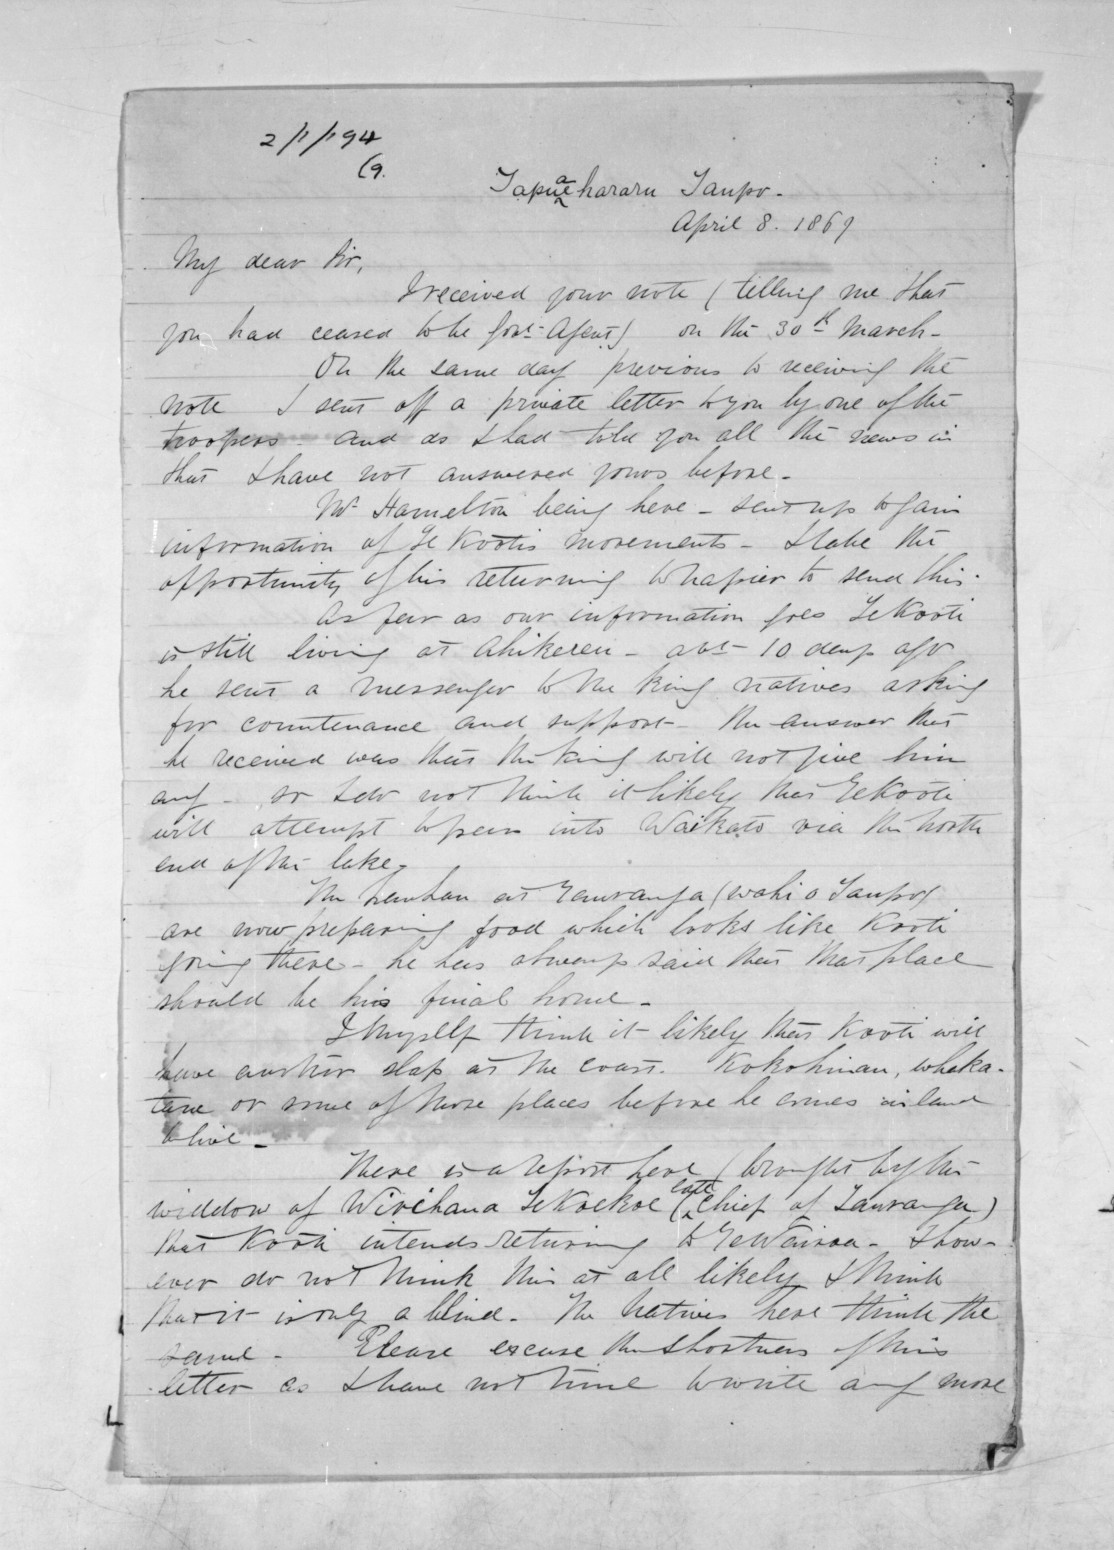 2/1/194
69.
Tapuaehararu Taupo.
April 8. 1869
My dear Sir,
I received your note (telling me that
you had ceased to be Govt Agent) on the 30th March.
On the same day previous to receiving the
note I sent off a private letter to you by one of the
troopers and as I had told you all the news in
that I have not answered yours before.
Mr Hamelton being here - sent up to gain
information of Te Kootis movements - I take the
opportunity of his returning to Napier to send this.
As far as our information goes Te Kooti
is still living at Ahikereru - abt 10 days ago
he sent a messenger to the King natives asking
for countenance and support - the answer that
he received was that the King will not give him
any - so I do not think it likely that Te Kooti
will attempt to pass into Waikato via the North
end of the lake.
The Hauhau at Tauranga (wahi o Taupo)
are now preparing food which looks like Kooti
going there - he has always said that that place
should be his final home -
I myself think it likely that Kooti will
have another slap at the coast. Kokohinau, Whaka-
tane or some of those places before he comes inland
to live -
There is a report here (brought by the
widdow of Wirihana Te Koekoe (late chief of Tauranga)
that Kooti intends returning to Te Wairoa - I how-
ever do not think this at all likely I think
that it is only a blind. The Natives here think the
same - Please excuse the shortness of this
letter as I have not time to write any more